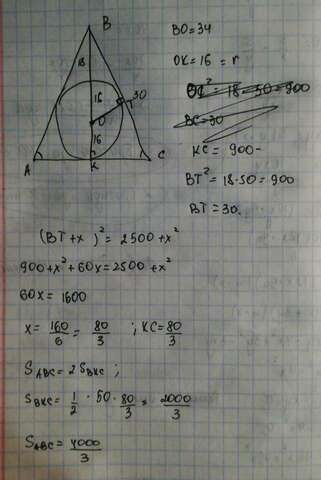 B
18
16
30
O
T
16
A
K
C
BO = 34
OK = 16 = r
BC² = 18 · 50 = 900
BC = 30
KC = 900 -
BT² = 18 · 50 = 900
BT = 30.
(BT + x)² = 2500 + x²
900 + x² + 60x = 2500 + x²
60x = 1600
x = 160/6 = 80/3 ; KC = 80/3
S_ABC = 2 S_BKC ;
S_BKC = 1/2 · 50 · 80/3 = 2000/3
S_ABC = 4000/3